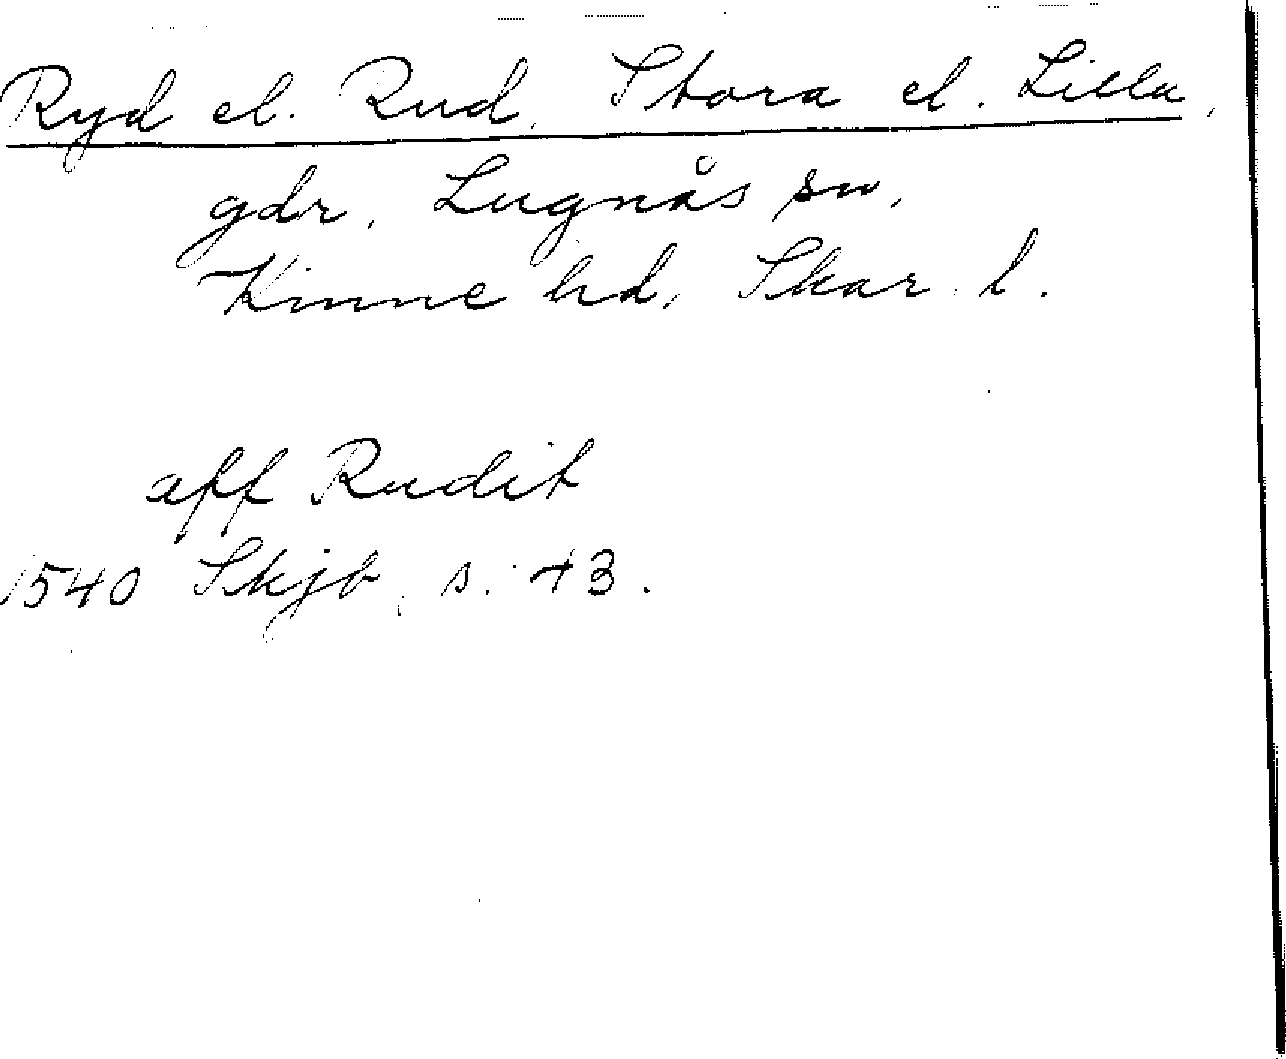 Ryd el. Rud, Stora el. Lilla,
gdr, Lugnås sn,
Kinne hd, Skar. l.
aff Rudit
1540 Skjb, s. 73.